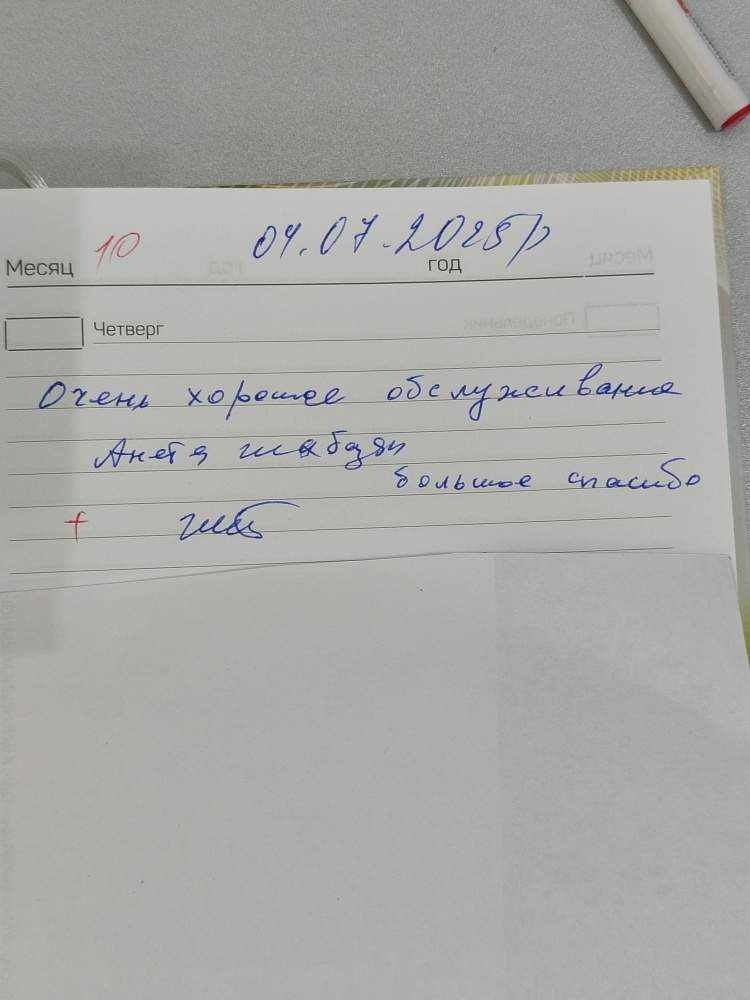 Месяц 10 04.07.2025р год
Четверг
Очень хорошее обслуживание
Анетя шабазян
большое спасибо
+ шаб